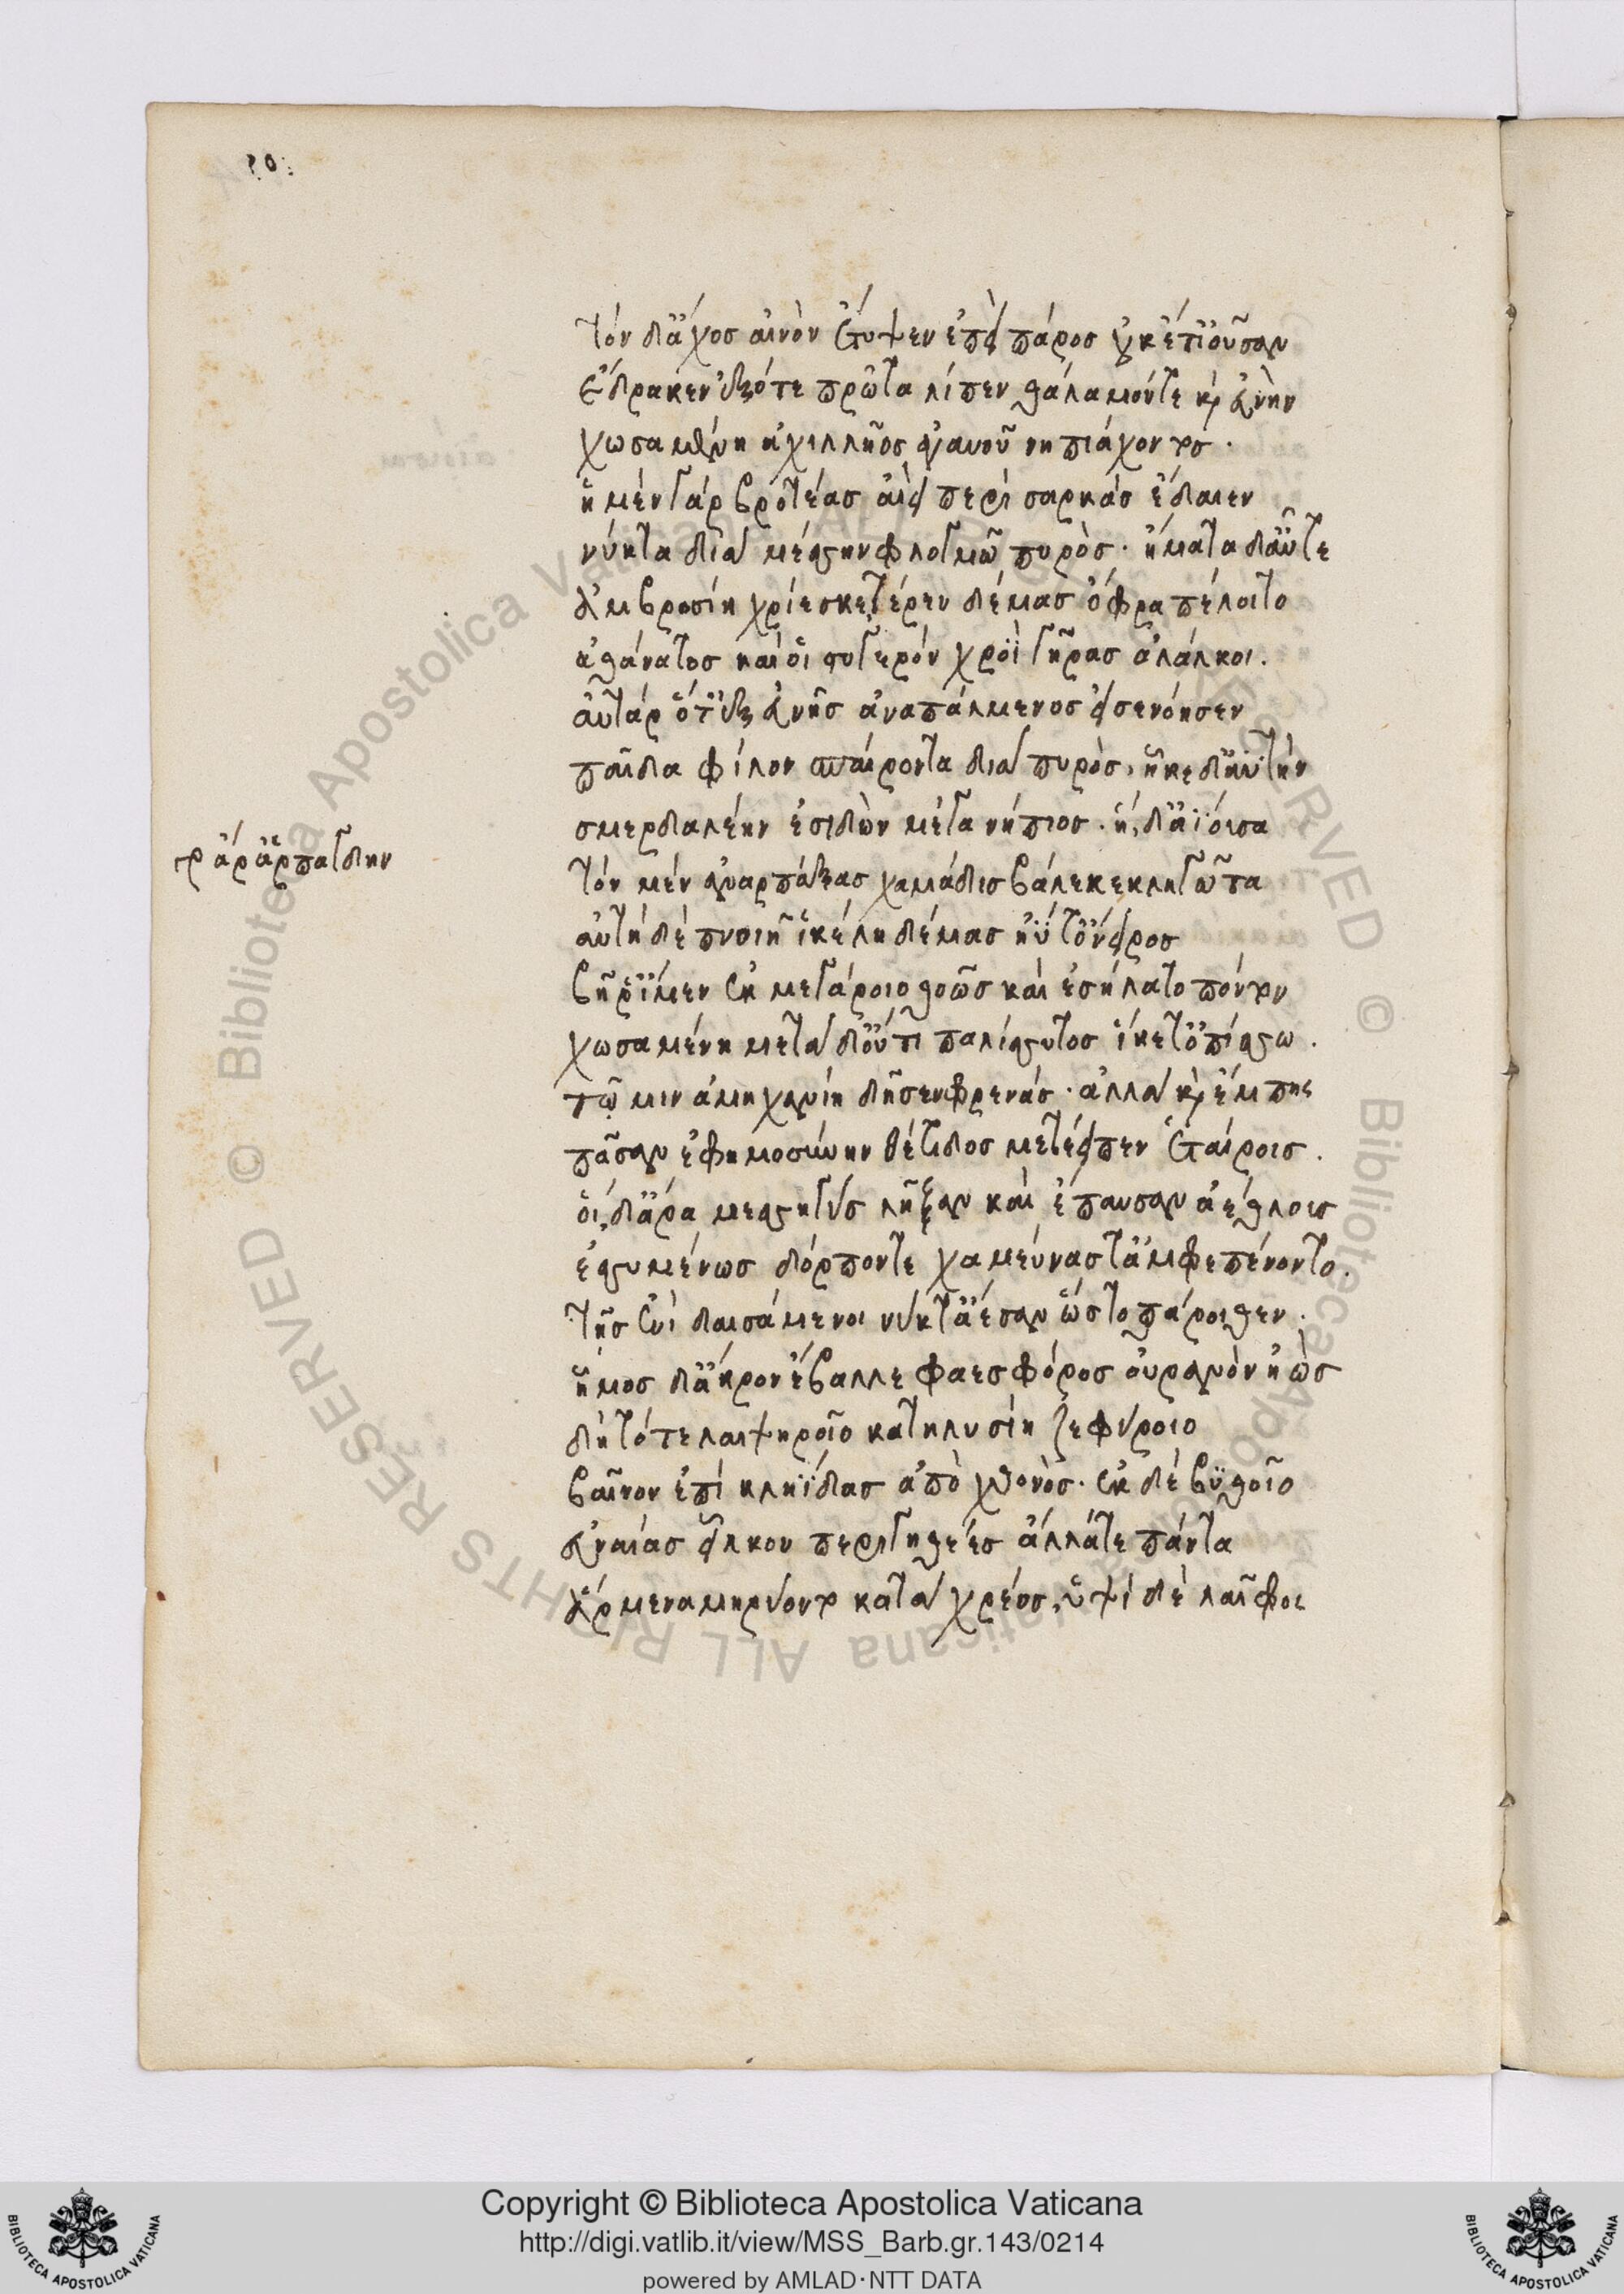 τὸν δ' ἄχος αἰνὸν ἔτυψεν ἐπεὶ πάρος οὐκέτ' ἰοῦσαν
ἔδρακεν ἐξότε πρῶτα λίπεν θάλαμόν τε καὶ εὐνὴν
χωσαμένη ἀχιλλῆος ἀγαυοῦ νηπιάχοντος.
ἡ μὲν γὰρ βροτέας αἰεὶ περὶ σαρκὰς ἔδαιεν
νύκτα διὰ μέσσην φλογμῶ πυρός. ἤματα δ' αὖτε
ἀμβροσίη χρίεσκε τέρεν δέμας ὄφρα πέλοιτο
ἀθάνατος καί οἱ στυγερὸν χροῒ γῆρας ἀλάλκοι.
αὐτὰρ ὅτ' ἐξ εὐνῆς ἀναπάλμενος εἰσενόησεν
παῖδα φίλον σπαίροντα διὰ πυρὸς, ἧκε δ' ἀϋτὴν
σμερδαλέην ἐσιδὼν μέγα νήπιος. ἡ, δ' ἀΐουσα
τὸν μὲν ἀναρπάξασ χαμάδις βάλε κεκληγῶτα
τὸν ἄρ' ἁρπάγδην
αὐτὴ δὲ πνοιῆ ἰκέλη δέμας ἠΰτ' ὄνειρος
βῆ ῥ' ἴμεν ἐκ μεγάροιο θοῶς καὶ ἐσήλατο πόντον
χωσαμένη μετὰ δ' οὔτι παλίσσυτος ἵκετ' ὀπίσσω.
τῷ μιν ἀμηχανίη δῆσεν φρένας. ἀλλὰ καὶ ἔμπης
πᾶσαν ἐφημοσύνην θέτιδος μετέειπεν ἑταίροις.
οἱ, δ' ἄρα μεσσηγὺς λῆξαν καὶ ἔπαυσαν ἀέθλοις
ἐσσυμένως δόρπόν τε χαμεύνας τ' ἀμφεπένοντο.
τῆς ἔνι δαισάμενοι νύκτ' ἄεσαν ὡς τὸ πάροιθεν.
ἦμος δ' ἄκρον ἔβαλλε φαεσφόρος οὐρανὸν ἠὼς
δὴ τότε λαιψηροῖο κατηλυσίη ζεφύροιο
βαῖνον ἐπὶ κληῗδας ἀπὸ χθονός. ἐκ δὲ βυθοῖο
εὐναίας εἷλκον περιγηθέες ἄλλά τε πάντα
ἄρμενα μηρύοντο κατὰ χρέος, ὕψι δὲ λαῖφος
Copyright © Biblioteca Apostolica Vaticana
http://digi.vatlib.it/view/MSS_Barb.gr.143/0214
powered by AMLAD·NTT DATA